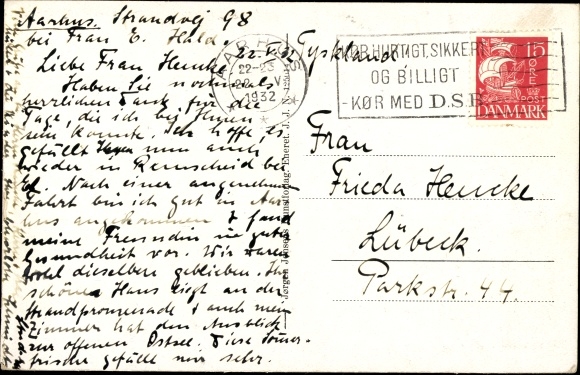 Aarhus. Strandvej 98
bei Frau E. Hald. 22.V.32
Liebe Frau Hencke
Haben Sie nochmals
herzlichen Dank für die
Tage, die ich bei Ihnen
sein konnte. Ich hoffe, es
gefällt Ihnen nun auch
wieder in Remscheid bei
Nach einer angenehmen
Fahrt bin ich gut in Aar-
hus angekommen & fand
meine Freundin in guter
Gesundheit vor. Wir waren
wohl dieselben geblieben. Ihr
schönes Haus liegt an der
Strandpromenade & auch mein
Zimmer hat den Ausblick
zur offenen Ostsee. Diese Sommer-
frische gefällt mir sehr.
Jørgen Jensens Kunstforlag. Eneret. J. J. N.
AARHUS
22-23
22.V
1932
KØR HURTIGT, SIKKERT
OG BILLIGT
- KØR MED D.S.B.
15
ØRE
POST
DANMARK
Tyskland
Frau
Frieda Hencke
Lübeck.
Parkstr. 44.